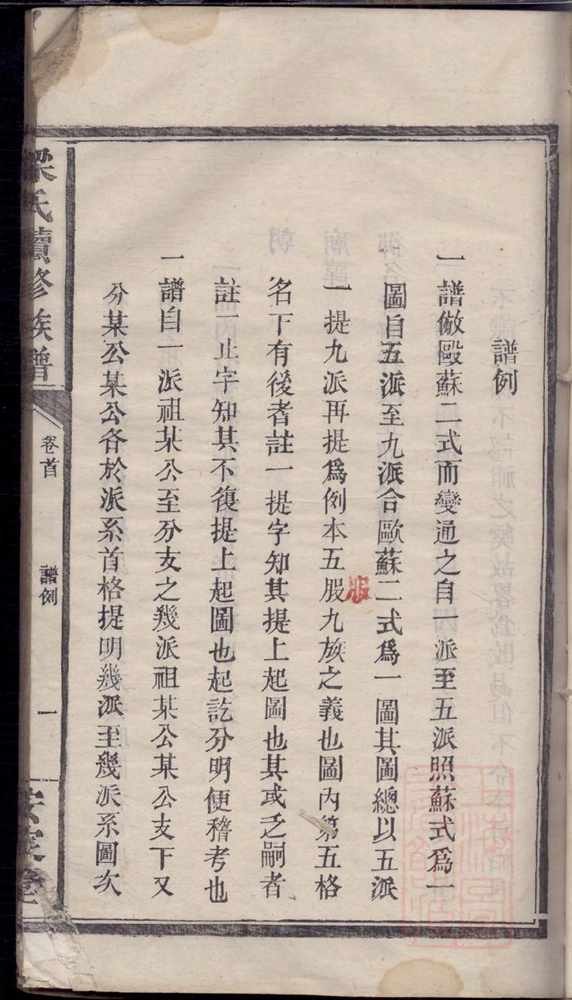 譜例
一譜倣毆蘇二式而變通之自一派至五派照蘇式爲一
圖自五派至九派合歐蘇二式爲一圖其圖總以五派
一提九派再提爲例本五股九族之義也圖內第五格
服
名下有後者註一提字知其提上起圖也其或乏嗣者
註一止字知其不復提上起圖也起訖分明便稽考也
一譜自一派祖某公至分支之幾派祖某公某公支下又
分某公某公各於派系首格提明幾派至幾派系圖次
梁氏續修族譜
卷首
譜例
一